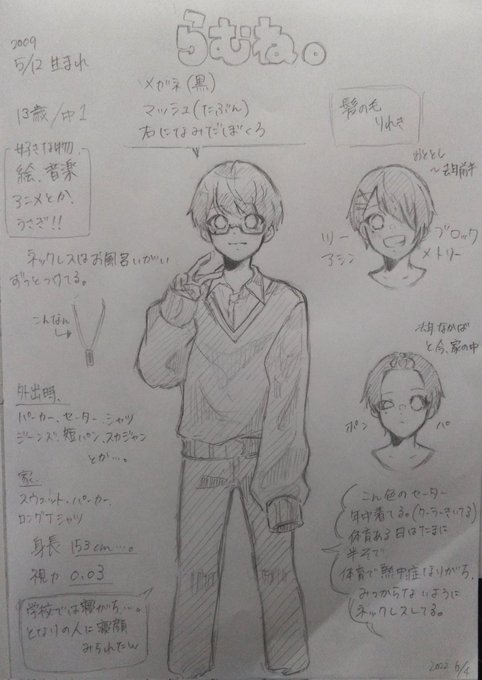 らむね。
2009
5/12 生まれ
13歳/中1
好きな物
絵、音楽
アニメとか、
うさぎ!!
メガネ(黒)
マッシュ(たぶん)
右になみだぼくろ
髪の毛
りれき
おととし
〜去年前半
ツー
ブロック
アシン
メトリー
ネックレスはお風呂いがい
ずっとつけてる。
こんなん
去年なかば
と今、家の中
ポン
パ
外出時、
パーカー、セーター、シャツ
ジーンズ、短パン、スカジャン
とか…。
家、
スウェット、パーカー、
ロングTシャツ
身長 153cm…。
視力 0.03
学校では寝がち…。
となりの人に寝顔
みられたんw
こん色のセーター
年中着てる。(クーラーきいてる)
体育ある日はたまに
半そで
体育で熱中症なりがち、
みつからないように
ネックレスしてる。
2022 6/4